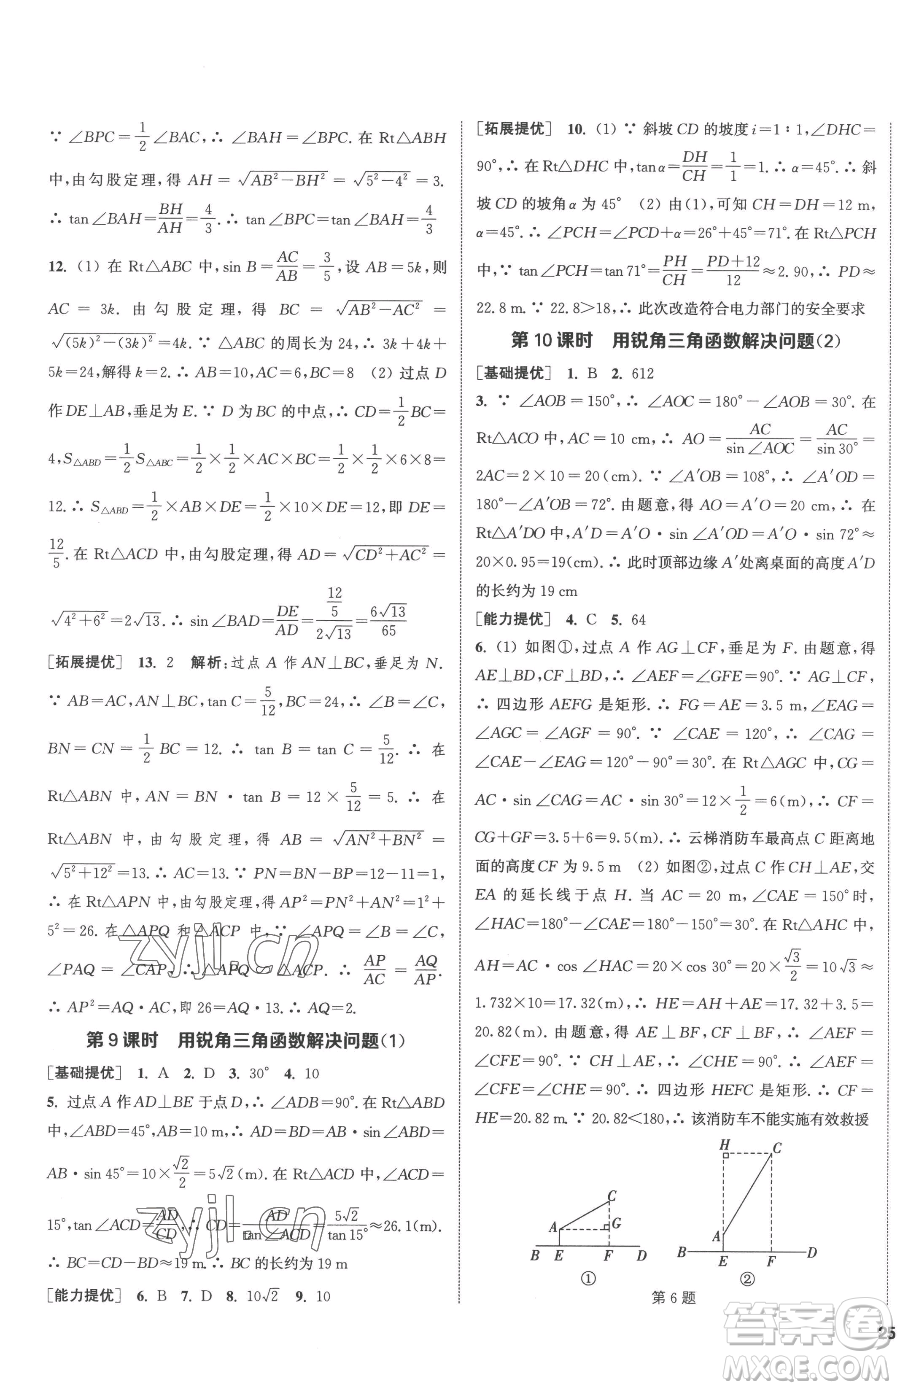 ∵ ∠BPC=1/2∠BAC,∴ ∠BAH=∠BPC. 在 Rt△ABH
中,由勾股定理,得 AH=√(AB²−BH²)=√(5²−4²)=3.
∴ tan∠BAH=BH/AH=4/3. ∴ tan∠BPC=tan∠BAH=4/3
12. (1) 在 Rt△ABC 中,sin B=AC/AB=3/5,设 AB=5k,则
AC=3k. 由勾股定理,得 BC=√(AB²−AC²)=
√((5k)²−(3k)²)=4k. ∵ △ABC 的周长为 24,∴ 3k+4k+
5k=24,解得 k=2. ∴ AB=10,AC=6,BC=8 (2) 过点 D
作 DE⊥AB,垂足为 E. ∵ D 为 BC 的中点,∴ CD=1/2BC=
4,S△ABD=1/2S△ABC=1/2×1/2AC·BC=1/2×1/2×6×8=
12. ∴ S△ABD=1/2×AB×DE=1/2×10×DE=12,即 DE=
12/5. 在 Rt△ACD 中,由勾股定理,得 AD=√(CD²+AC²)=
√(4²+6²)=2√13. ∴ sin∠BAD=DE/AD=(12/5)/(2√13)=6√13/65
[拓展提优] 13. 2 解析:过点 A 作 AN⊥BC,垂足为 N.
∵ AB=AC,AN⊥BC,tan C=5/12,BC=24,∴ ∠B=∠C,
BN=CN=1/2BC=12. ∴ tan B=tan C=5/12. ∴ 在
Rt△ABN 中,AN=BN·tan B=12×5/12=5. ∴ 在
Rt△ABN 中,由勾股定理,得 AB=√(AN²+BN²)=
√(5²+12²)=13. ∴ AC=13. ∵ PN=BN−BP=12−11=
1,∴ 在 Rt△APN 中,由勾股定理,得 AP²=PN²+AN²=1²+
5²=26. 在△APQ 和△ACP 中,∵ ∠APQ=∠B=∠C,
∠PAQ=∠CAP,∴ △APQ∽△ACP. ∴ AP/AC=AQ/AP.
∴ AP²=AQ·AC,即 26=AQ·13. ∴ AQ=2.
第 9 课时 用锐角三角函数解决问题(1)
[基础提优] 1. A 2. D 3. 30° 4. 10
5. 过点 A 作 AD⊥BE 于点 D,∴ ∠ADB=90°. 在 Rt△ABD
中,∠ABD=45°,AB=10 m,∴ AD=BD=AB·sin∠ABD=
AB·sin 45°=10×√2/2=5√2(m). 在 Rt△ACD 中,∠ACD=
15°,tan∠ACD=AD/CD,∴ CD=AD/tan∠ACD=5√2/tan 15°≈26.1(m).
∴ BC=CD−BD≈19(m). ∴ BC的长约为 19 m
[能力提优] 6. B 7. D 8. 10√2 9. 10
[拓展提优] 10. (1) ∵ 斜坡 CD 的坡度 i=1∶1,∠DHC=
90°,∴ 在 Rt△DHC 中,tanα=DH/CH=1/1=1. ∴ α=45°. ∴ 斜
坡 CD 的坡角α为 45° (2) 由(1),可知 CH=DH=12 m,
α=45°. ∴ ∠PCH=∠PCD+α=26°+45°=71°. 在 Rt△PCH
中,∵ tan∠PCH=tan 71°=PH/CH=(PD+12)/12≈2.90,∴ PD≈
22.8 m. ∵ 22.8>18,∴ 此次改造符合电力部门的安全要求
第 10 课时 用锐角三角函数解决问题(2)
[基础提优] 1. B 2. 612
3. ∵ ∠AOB=150°,∴ ∠AOC=180°−∠AOB=30°. 在
Rt△ACO 中,AC=10 cm,∴ AO=AC/sin∠AOC=AC/sin 30°=
2AC=2×10=20(cm). ∵ ∠A′OB=108°,∴ ∠A′OD=
180°−∠A′OB=72°. 由题意,得 AO=A′O=20 cm,∴ 在
Rt△A′DO 中,A′D=A′O·sin∠A′OD=A′O·sin 72°≈
20×0.95=19(cm). ∴ 此时顶部边缘 A′处离桌面的高度 A′D
的长约为 19 cm
[能力提优] 4. C 5. 64
6. (1) 如图①,过点 A 作 AG⊥CF,垂足为 G. 由题意,得
AE⊥BD,CF⊥BD,∴ ∠AEF=∠GFE=90°. ∵ AG⊥CF,
∴ 四边形 AEFG 是矩形. ∴ FG=AE=3.5 m,∠EAG=
∠AGC=∠AGF=90°. ∵ ∠CAE=120°,∴ ∠CAG=
∠CAE−∠EAG=120°−90°=30°. 在 Rt△AGC 中,CG=
AC·sin∠CAG=AC·sin 30°=12×1/2=6(m),∴ CF=
CG+GF=3.5+6=9.5(m). ∴ 云梯消防车最高点 C 距离地
面的高度 CF 为 9.5 m (2) 如图②,过点 C 作 CH⊥AE,交
EA 的延长线于点 H. 当 AC=20 m,∠CAE=150°时,
∠HAC=180°−∠CAE=180°−150°=30°. 在 Rt△AHC 中,
AH=AC·cos∠HAC=20×cos 30°=20×√3/2=10√3≈
1.732×10=17.32(m). ∴ HE=AH+AE=17.32+3.5=
20.82(m). 由题意,得 AE⊥BD,CF⊥BD,∴ ∠AEF=
∠CFE=90°. ∵ CH⊥AE,∴ ∠CHE=90°. ∴ ∠CHE=
∠CFE=∠HEF=90°. ∴ 四边形 HEFC 是矩形. ∴ CF=
HE=20.82 m. ∵ 20.82<180,∴ 该消防车不能实施有效救援
H C
C
A G A
B E F D B E F D
① ②
第 6 题
25
zyjl.cn
zyjl.cn
答案圈
MXQE.COM